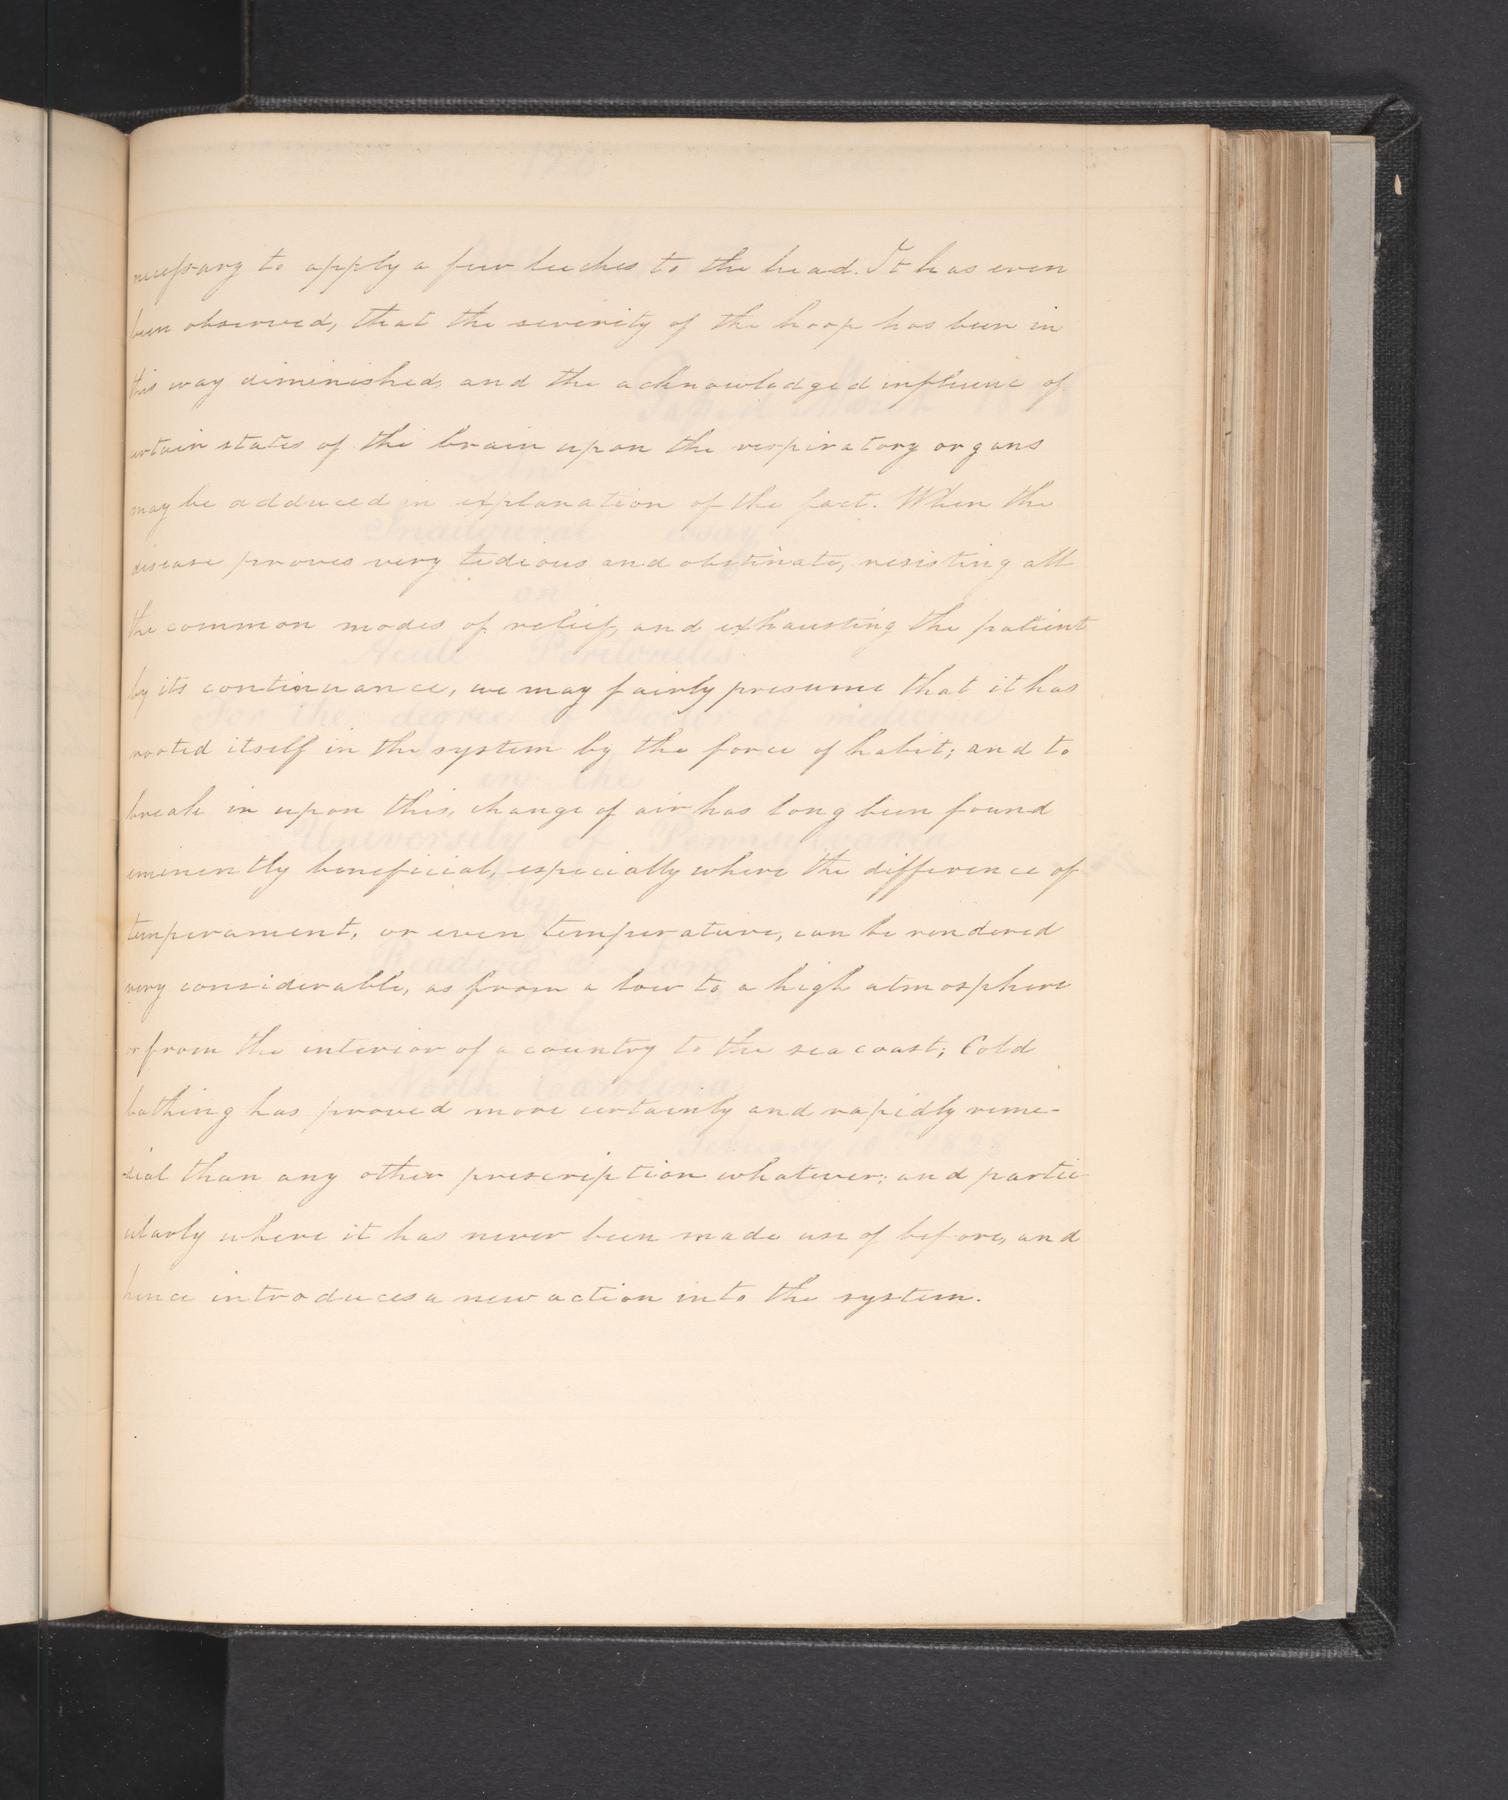 necessary to apply a few leeches to the head. It has even
been observed, that the severity of the hoop has been in
this way diminished, and the acknowledged influence of
certain states of the brain upon the respiratory organs
may be adduced in explanation of the fact. When the
disease proves very tedious and obstinate, resisting all
the common modes of relief, and exhausting the patient
by its continuance, we may fairly presume that it has
rooted itself in the system by the force of habit; and to
break in upon this, change of air has long been found
eminently beneficial, especially where the difference of
temperament, or even temperature, can be rendered
very considerable, as from a low to a high atmosphere
or from the interior of a country to the sea coast; Cold
bathing has proved more certainly and rapidly reme-
dial than any other prescription whatever; and partic
ularly where it has never been made use of before, and
hence introduces a new action into the system.